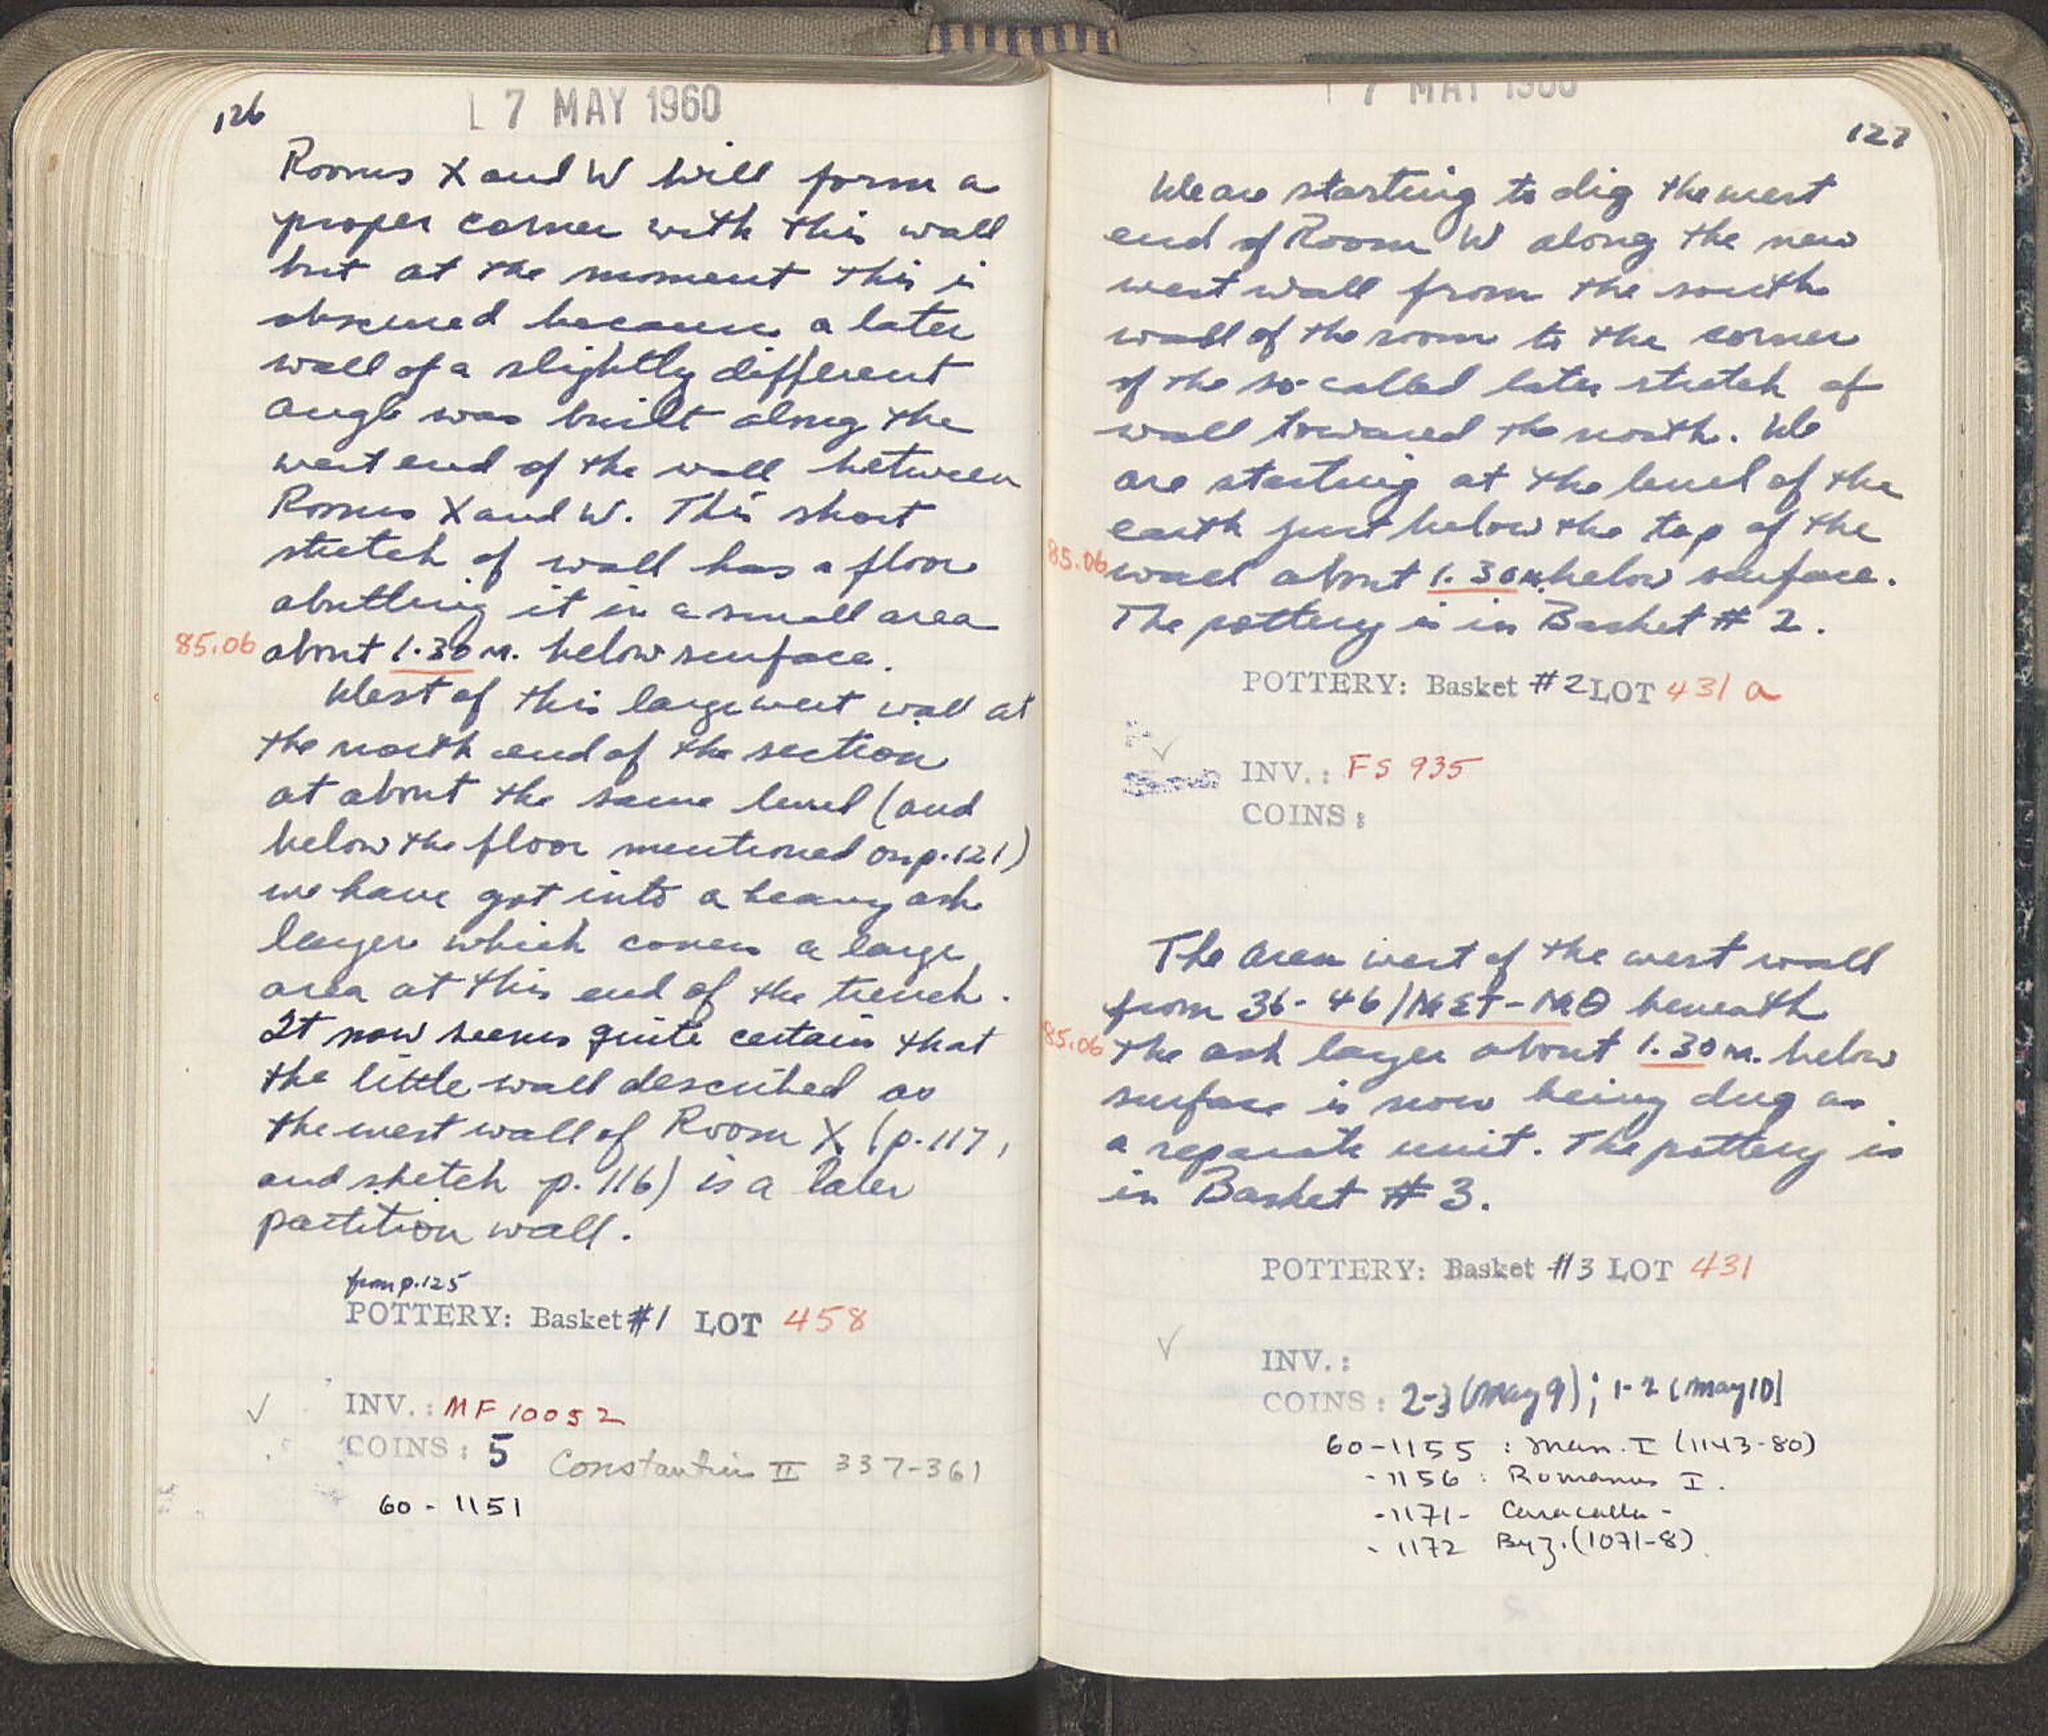 126
7 MAY 1960
Rooms X and W will form a
proper corner with this wall
but at the moment this is
obscured because a later
wall of a slightly different
angle was built along the
west end of the wall between
Rooms X and W. This short
stretch of wall has a floor
abutting it in a small area
85.06 about 1.30 m. below surface.
West of this large west wall at
the north end of the section
at about the same level (and
below the floor mentioned on p.121)
we have got into a heavy ash
layer which covers a large
area at this end of the trench.
It now seems quite certain that
the little wall described as
the west wall of Room X (p.117,
and sketch p.116) is a later
partition wall.
from p.125
POTTERY: Basket #1 LOT 458
✓ INV.: MF 10052
COINS: 5 Constantius II 337-361
60-1151
7 MAY 1960
127
We are starting to dig the west
end of Room W along the new
west wall from the south
wall of the room to the corner
of the so-called later stretch of
wall toward the north. We
are starting at the level of the
earth just below the top of the
85.06 wall about 1.30m. below surface.
The pottery is in Basket #2.
POTTERY: Basket #2 LOT 431 a
✓ INV.: FS 935
COINS:
The area west of the west wall
from 36-46/
beneath
85.06 the ash layer about 1.30 m. below
surface is now being dug as
a separate unit. The pottery is
in Basket #3.
POTTERY: Basket #3 LOT 431
✓ INV.:
COINS: 2-3 (May 9); 1-2 (May 10)
60-1155 : Man. I (1143-80)
-1156 : Romanus I.
-1171- Caracalla-
-1172 Byz. (1071-8)